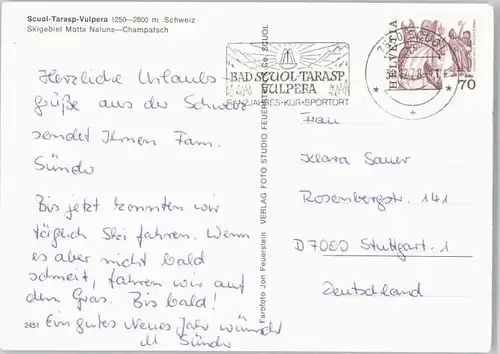 Scuol-Tarasp-Vulpera 1250—2800 m. Schweiz
Skigebiet Motta Naluns—Champatsch
Herzliche Urlaubs-
grüße aus der Schweiz
sendet Ihnen Fam.
Sünder
Bis jetzt konnten wir
täglich Ski fahren. Wenn
es aber nicht bald
schneit, fahren wir auf
dem Gras. Bis bald!
Ein gutes Neues Jahr wünscht
M Sünder
2451
Farbfoto Jon Feuerstein VERLAG FOTO STUDIO FEUERSTEIN Co. SCUOL
BAD SCUOL-TARASP
VULPERA
GANZJAHRES-KUR-SPORTORT
7550 SCUOL
HELVETIA
70
Frau
Klara Sauer
Rosenbergstr. 141
D7000 Stuttgart-1
Deutschland